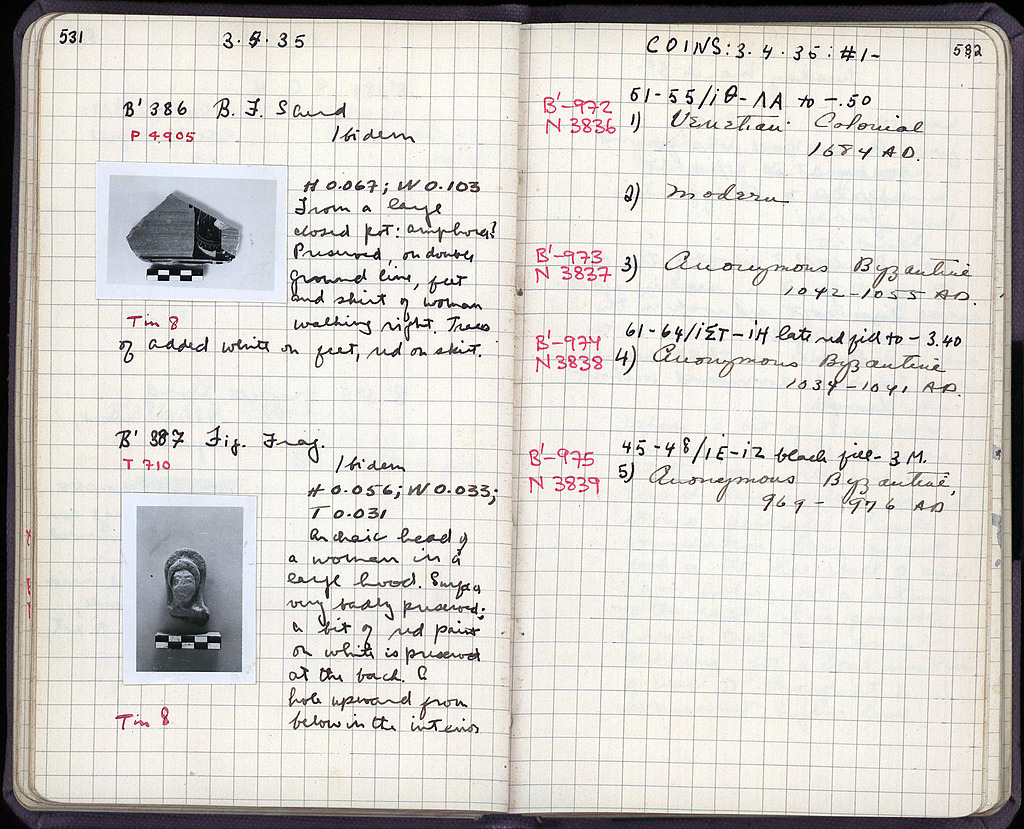 531
3.4.35
B' 386 B. F. Sherd
P 4905
Ibidem
H 0.067; W 0.103
From a large
closed pot: amphora?
Preserved, on double
ground line, feet
and skirt of woman
walking right. Traces
of added white on feet, red on skirt.
Tin 8
B' 387 Fig. Frag.
T 710
Ibidem
H 0.056; W 0.033;
T 0.031
Archaic head of
a woman in a
large hood. Surface
very badly preserved;
a bit of red paint
on white is preserved
at the back. A
hole upward from
below in the interior
Tin 8
COINS: 3.4.35: #1-
582
51-55/ιθ-ΛΑ to -.50
B'-972
N 3836
1) Venetian Colonial
1684 AD.
2) Modern
B'-973
N 3837
3) Anonymous Byzantine
1042-1055 AD.
61-64/ιΣΤ-ιΗ late red fill to - 3.40
B'-974
N 3838
4) Anonymous Byzantine
1034-1041 AD.
45-48/ιΕ-ιΖ black fill - 3 M.
B'-975
N 3839
5) Anonymous Byzantine,
969-976 AD